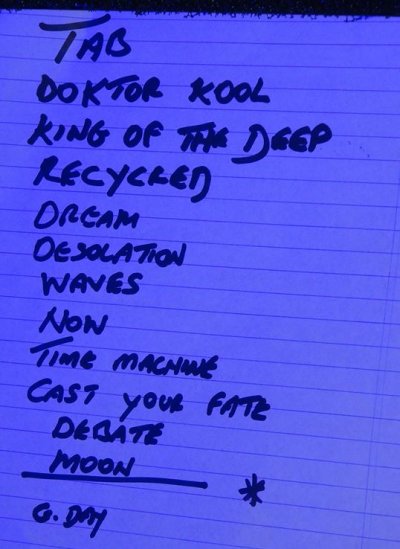 TAB
DOKTOR KOOL
KING OF THE DEEP
RECYCLED
DREAM
DESOLATION
WAVES
NOW
TIME MACHINE
CAST YOUR FATE
DEBATE
MOON
*
G. DAY